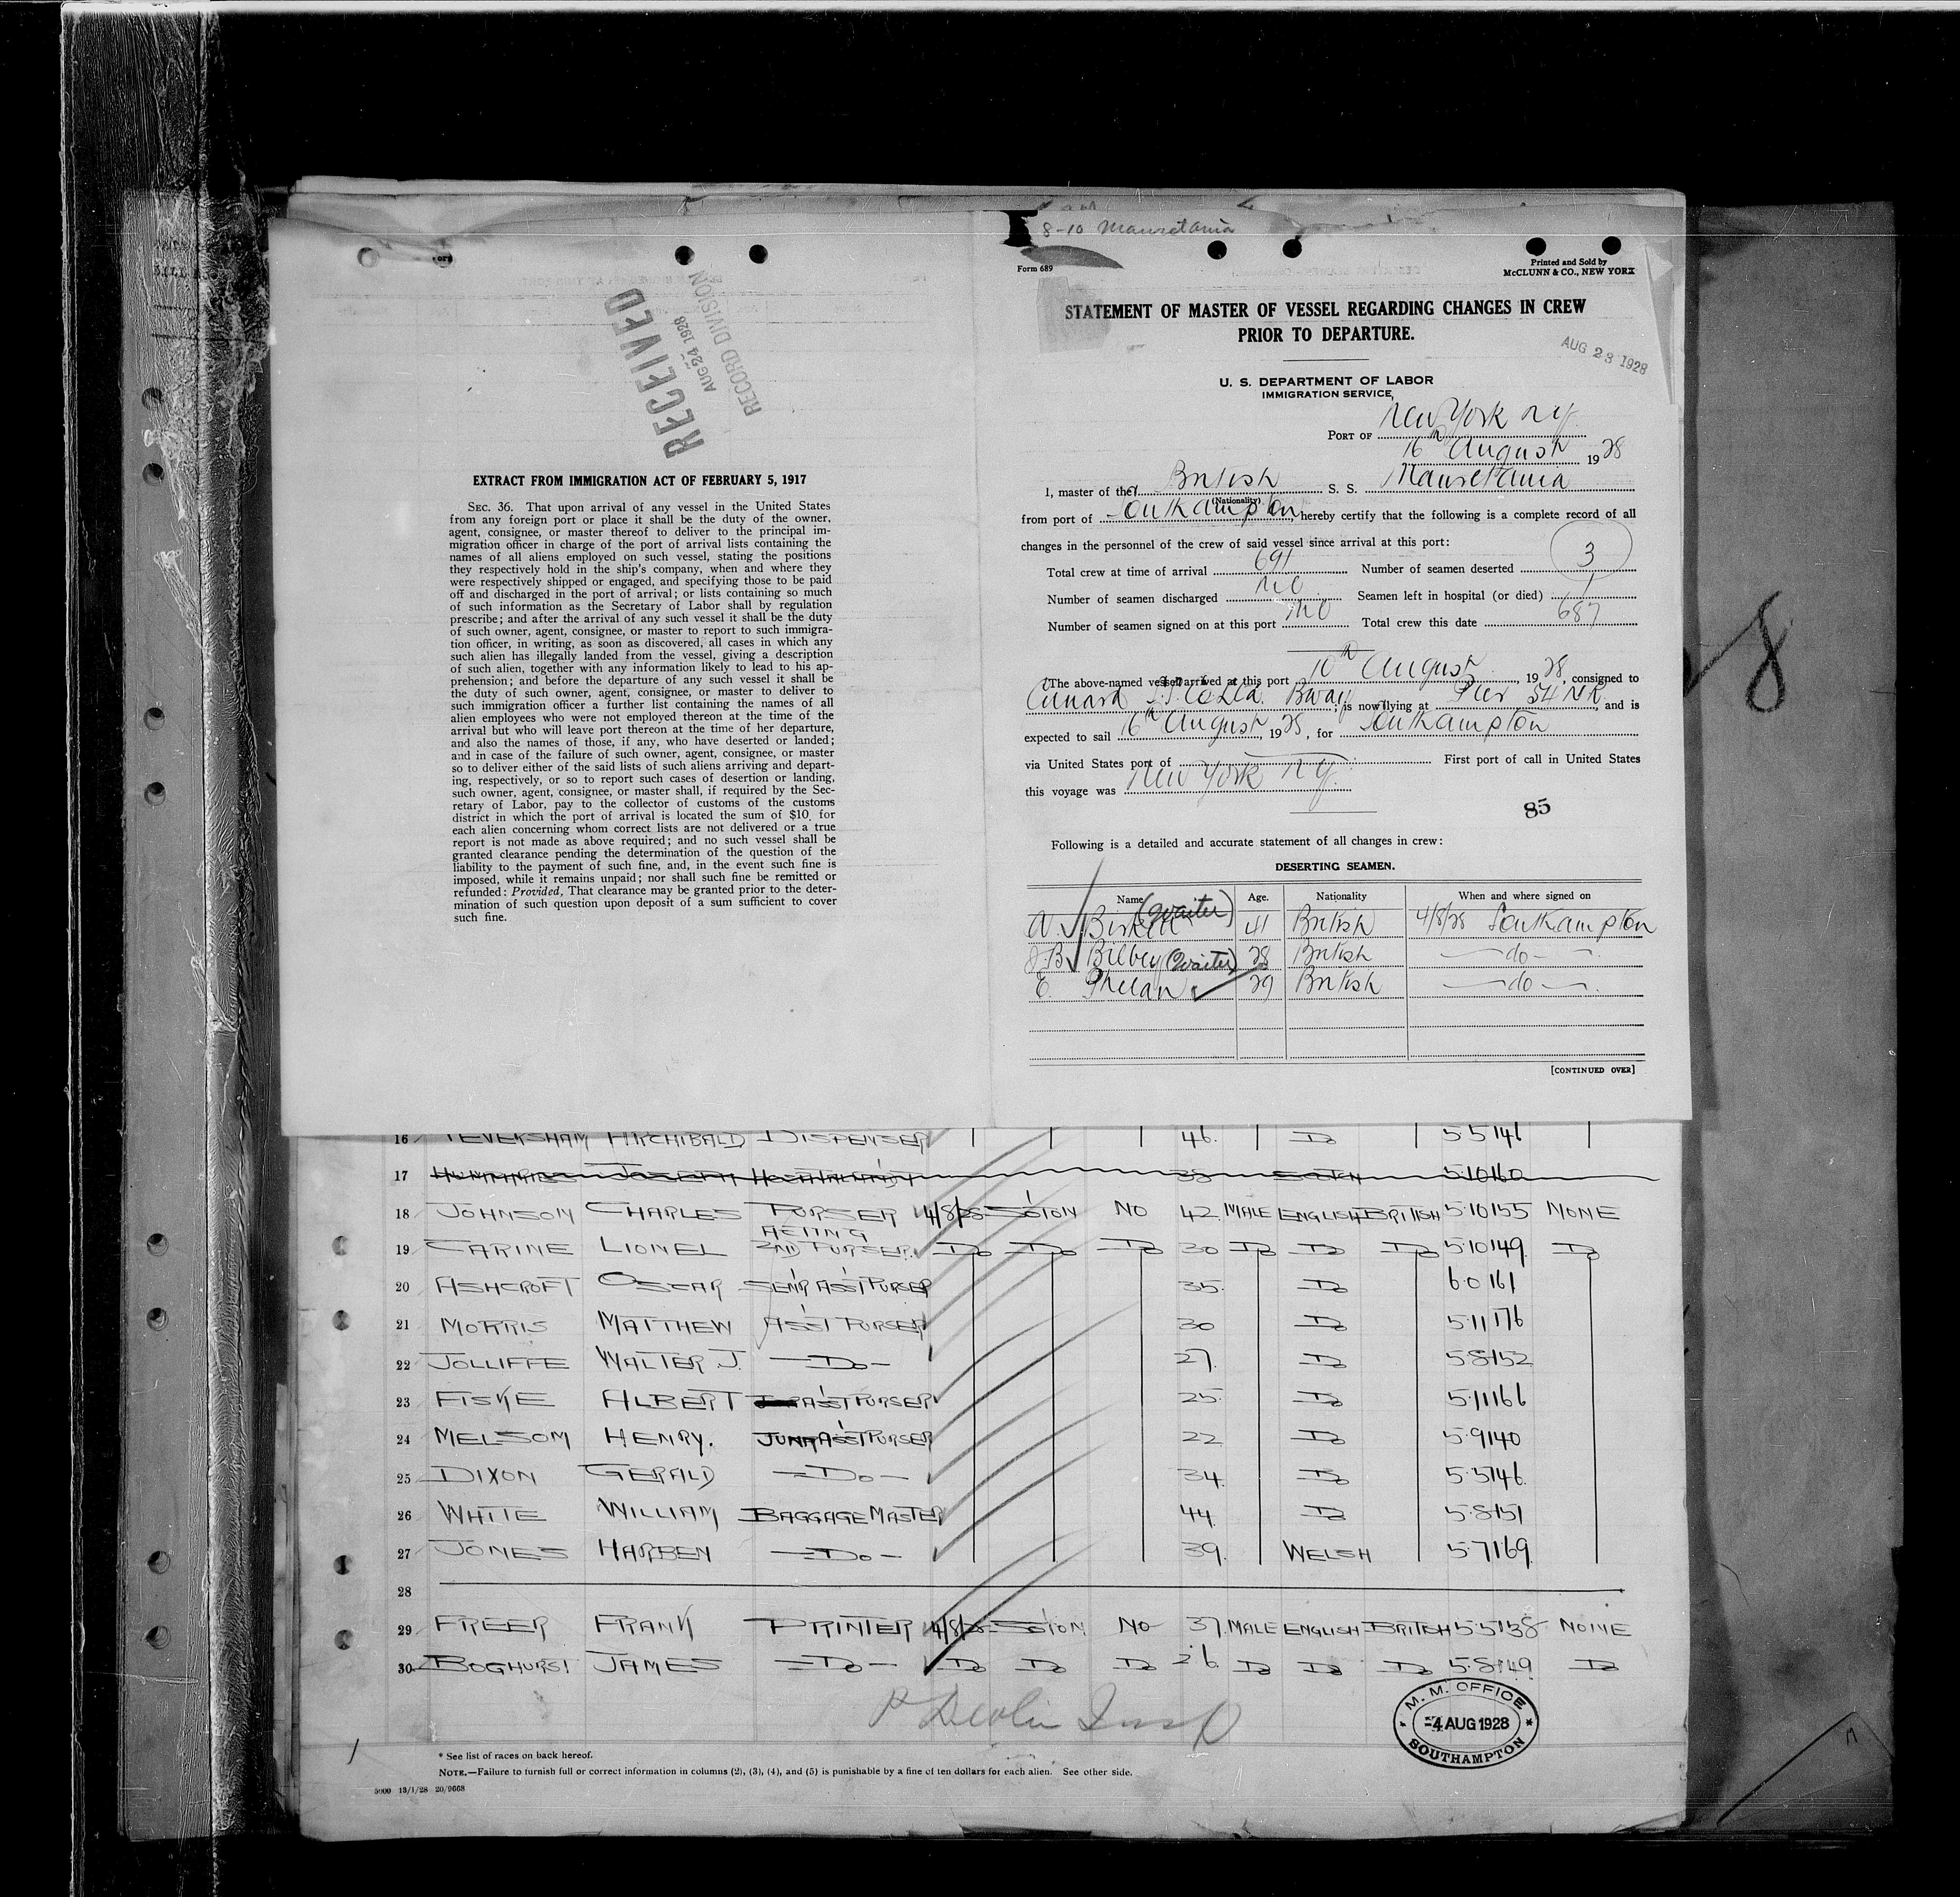 8-10 Mauretania
Form 689
Printed and Sold by
McCLUNN & CO., NEW YORK
RECEIVED
AUG 24 1928
RECORD DIVISION
EXTRACT FROM IMMIGRATION ACT OF FEBRUARY 5, 1917
SEC. 36. That upon arrival of any vessel in the United States
from any foreign port or place it shall be the duty of the owner,
agent, consignee, or master thereof to deliver to the principal im-
migration officer in charge of the port of arrival lists containing the
names of all aliens employed on such vessel, stating the positions
they respectively hold in the ship's company, when and where they
were respectively shipped or engaged, and specifying those to be paid
off and discharged in the port of arrival; or lists containing so much
of such information as the Secretary of Labor shall by regulation
prescribe; and after the arrival of any such vessel it shall be the duty
of such owner, agent, consignee, or master to report to such immigra-
tion officer, in writing, as soon as discovered, all cases in which any
such alien has illegally landed from the vessel, giving a description
of such alien, together with any information likely to lead to his ap-
prehension; and before the departure of any such vessel it shall be
the duty of such owner, agent, consignee, or master to deliver to
such immigration officer a further list containing the names of all
alien employees who were not employed thereon at the time of the
arrival but who will leave port thereon at the time of her departure,
and also the names of those, if any, who have deserted or landed;
and in case of the failure of such owner, agent, consignee, or master
so to deliver either of the said lists of such aliens arriving and depart-
ing, respectively, or so to report such cases of desertion or landing,
such owner, agent, consignee, or master shall, if required by the Sec-
retary of Labor, pay to the collector of customs of the customs
district in which the port of arrival is located the sum of $10 for
each alien concerning whom correct lists are not delivered or a true
report is not made as above required; and no such vessel shall be
granted clearance pending the determination of the question of the
liability to the payment of such fine, and, in the event such fine is
imposed, while it remains unpaid; nor shall such fine be remitted or
refunded: Provided, That clearance may be granted prior to the deter-
mination of such question upon deposit of a sum sufficient to cover
such fine.
STATEMENT OF MASTER OF VESSEL REGARDING CHANGES IN CREW
PRIOR TO DEPARTURE.
AUG 23 1928
U. S. DEPARTMENT OF LABOR
IMMIGRATION SERVICE,
PORT OF New York NY.
16th August 1928
I, master of the British S. S. Mauretania
(Nationality)
from port of Southampton, hereby certify that the following is a complete record of all
changes in the personnel of the crew of said vessel since arrival at this port:
Total crew at time of arrival 691 Number of seamen deserted 3
Number of seamen discharged no Seamen left in hospital (or died) 1
Number of seamen signed on at this port no Total crew this date 687
The above-named vessel arrived at this port 10th August, 1928, consigned to
Cunard S.S. Co Ltd. Bway, is now lying at Pier 54 NR, and is
expected to sail 16th August, 1928, for Southampton
via United States port of First port of call in United States
this voyage was New York NY.
85
Following is a detailed and accurate statement of all changes in crew:
DESERTING SEAMEN.
Name Age. Nationality When and where signed on
A. (Waiter) 41 British 4/8/28 Southampton
J.B. Bilbey (Waiter) 28 British do
E. Phelan 29 British do
[CONTINUED OVER]
8
16 TEVERSHAM ARCHIBALD DISPENSER 46. Do 5 5 146
17 5.10 160
18 JOHNSON CHARLES PURSER 4/8/28 S'OTON NO 42. MALE ENGLISH BRITISH 5.10 155 NONE
19 CARINE LIONEL ACTING 2ND PURSER. Do Do Do 30 Do Do Do 5.10 149. Do
20 ASHCROFT OSCAR SEN'R ASS'T PURSER 35. Do 6.0 161
21 MORRIS MATTHEW ASS'T PURSER 30 Do 5.11 176
22 JOLLIFFE WALTER J. Do 27. Do 5.8 152
23 FISKE ALBERT ASS'T PURSER 25. Do 5.11 166
24 MELSOM HENRY. JUNR ASS'T PURSER 22 Do 5.9 140
25 DIXON GERALD Do 34. Do 5.5 146.
26 WHITE WILLIAM BAGGAGE MASTER 44. Do 5.8 151
27 JONES HARBEN Do 39. WELSH 5.7 169.
28
29 FREER FRANK PRINTER 4/8/28 S'OTON NO 37. MALE ENGLISH BRITISH 5.5 138 NONE
30 BOGHURST JAMES Do Do Do Do 26. Do Do Do 5.8 149 Do
M. M. OFFICE
-4 AUG 1928
SOUTHAMPTON
* See list of races on back hereof.
NOTE.—Failure to furnish full or correct information in columns (2), (3), (4), and (5) is punishable by a fine of ten dollars for each alien. See other side.
5000 13/1/28 20/9668